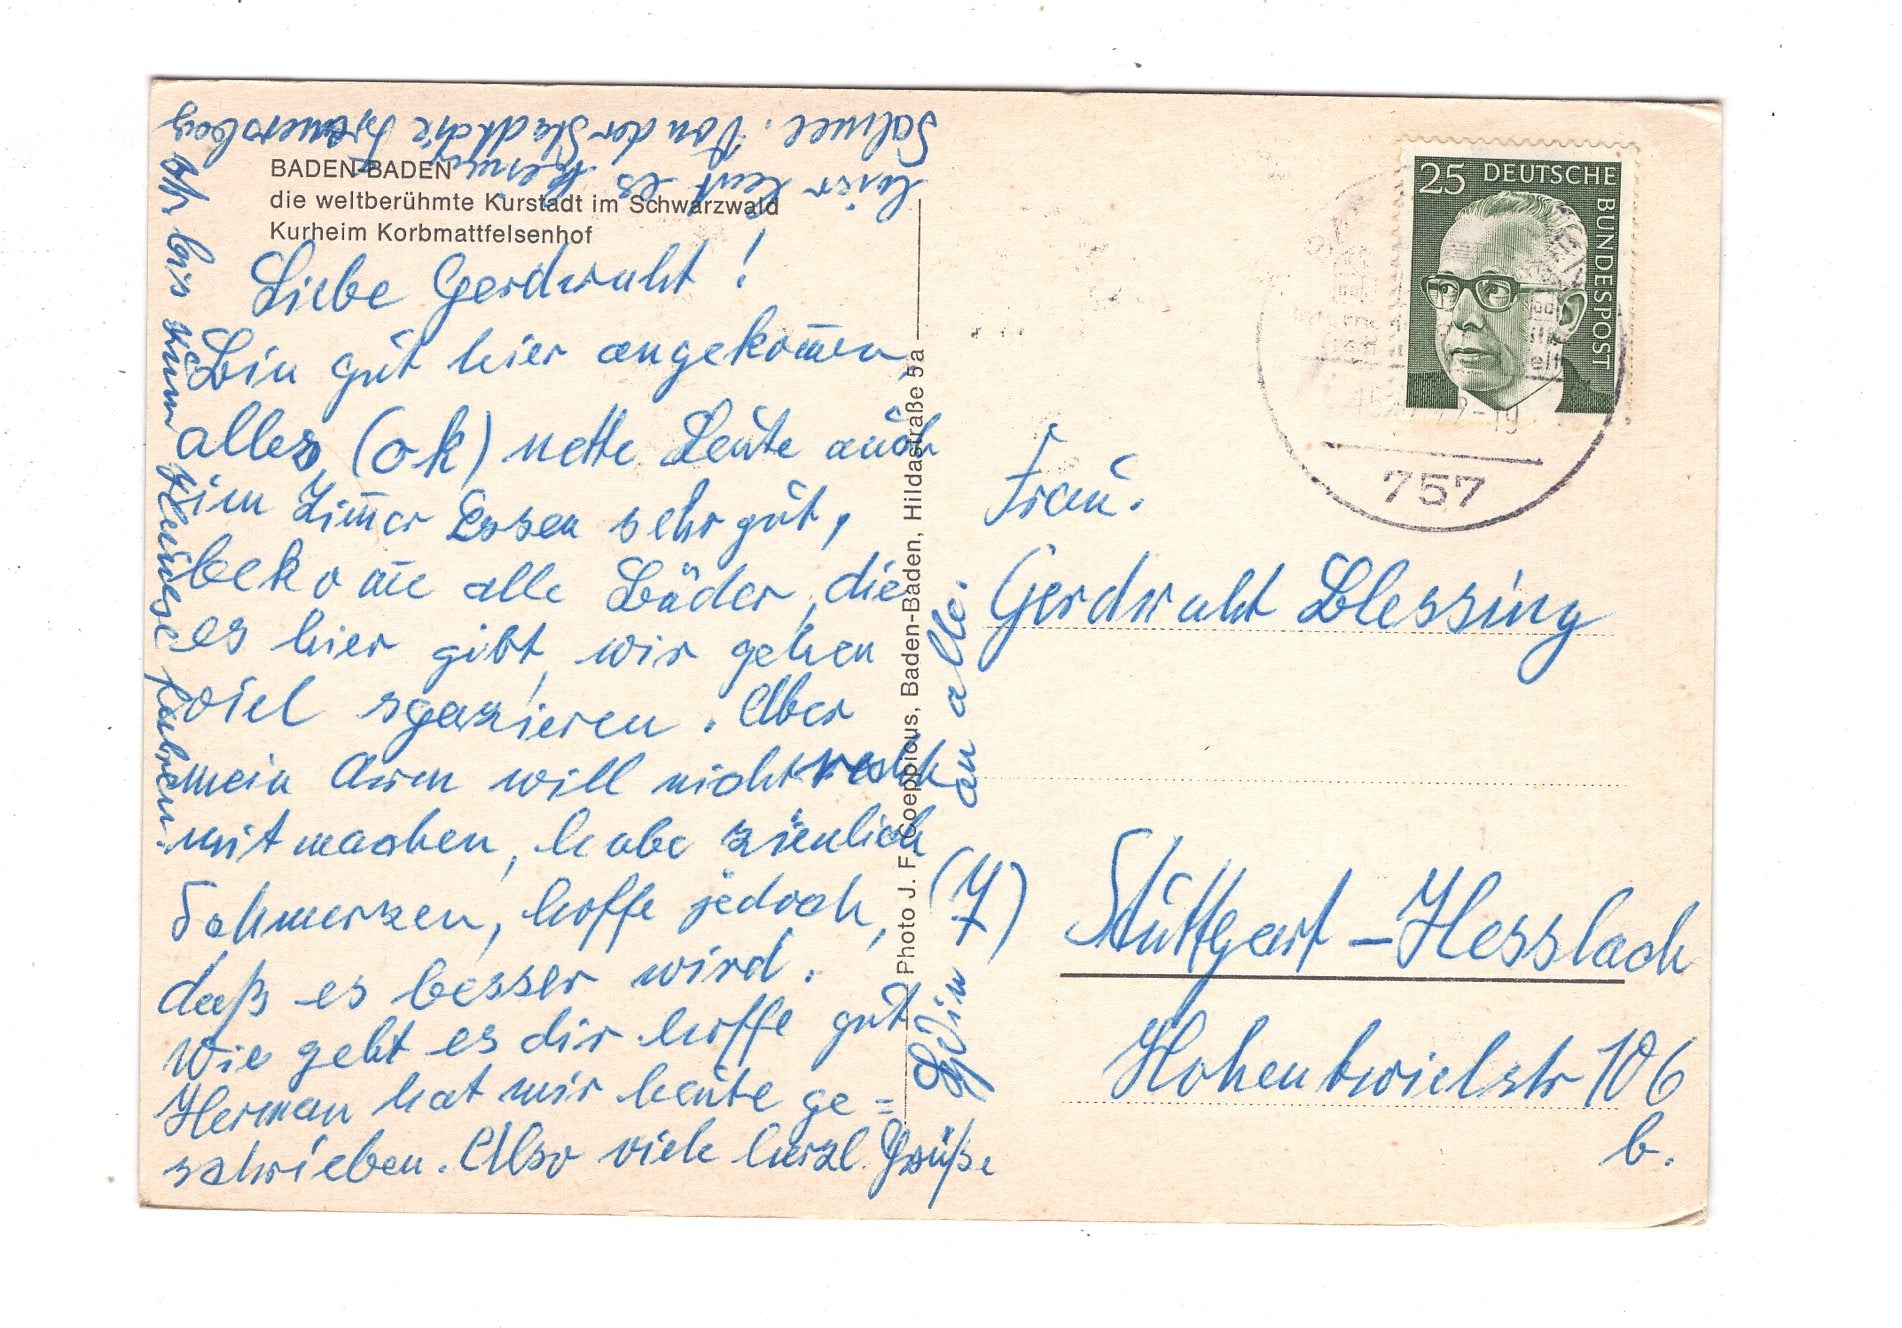 BADEN-BADEN
die weltberühmte Kurstadt im Schwarzwald
Kurheim Korbmattfelsenhof
Liebe Gerdraht!
Bin gut hier angekom̅en,
alles (ok) nette Leute auch
im Zim̅er Essen sehr gut,
beko m̅e alle Bäder, die
es hier gibt, wir gehen
viel spazieren. Aber
mein Arm will nicht recht
mitmachen, habe ziemlich
Schmerzen, hoffe jedoch,
daß es besser wird.
Wie geht es dir hoffe gut
Herman hat mir heute ge=
schrieben. Also viele herzl. Grüße
an alle.
(7)
hier hat es keinen
Schnee. Von der Stadtkirche
bis zum Hause fahren.
Photo J. F. Coeppicus, Baden-Baden, Hildastraße 5a
25 DEUTSCHE BUNDESPOST
72-19
757
Frau.
Gerdraht Blessing
Stuttgart-Hesslach
Hohentwielstr 106
b.